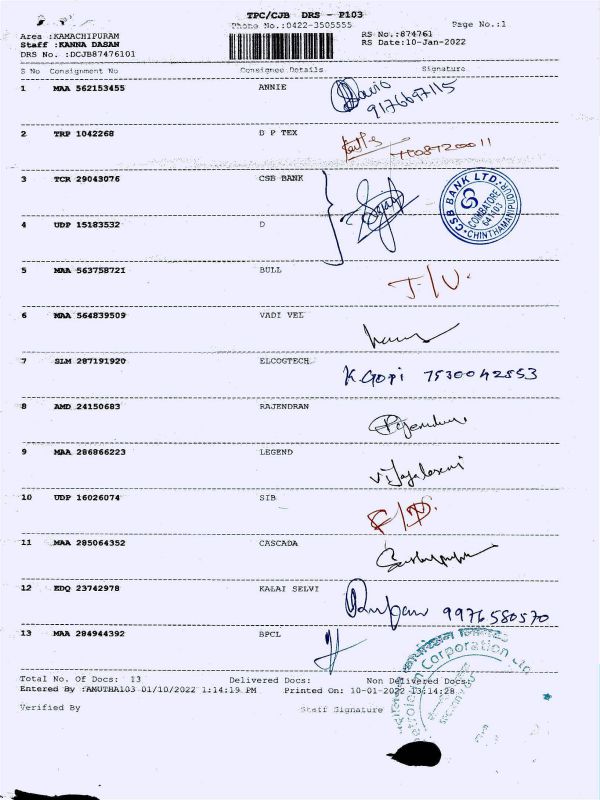 TPC/CJB DRS - P103
Phone No.:0422-3505555
Page No.:1
Area :KAMACHIPURAM
RS No.:874761
Staff :KANNA DASAN
RS Date:10-Jan-2022
DRS No. :DCJB87476101
S No Consignment No Consignee Details Signature
1 MAA 562153455 ANNIE
9176697115
2 TRP 1042268 D P TEX
3 TCR 29043076 CSB BANK
CSB BANK LTD. COIMBATORE 641103 CHINTHAMANIPUDUR
4 UDP 15183532 D
5 MAA 563758721 BULL
6 MAA 564839509 VADI VEL
7 SLM 287191920 ELCOGTECH
K.Gopi 7530042553
8 AMD 24150683 RAJENDRAN
9 MAA 286866223 LEGEND
Vijayalaxmi
10 UDP 16026074 SIB
11 MAA 285064352 CASCADA
12 EDQ 23742978 KALAI SELVI
9976580570
13 MAA 284944392 BPCL
Corporation
Total No. Of Docs: 13 Delivered Docs: Non Delivered Docs:
Entered By :AMUTHA103 01/10/2022 1:14:19 PM Printed On: 10-01-2022 13:14:28
Verified By Staff Signature